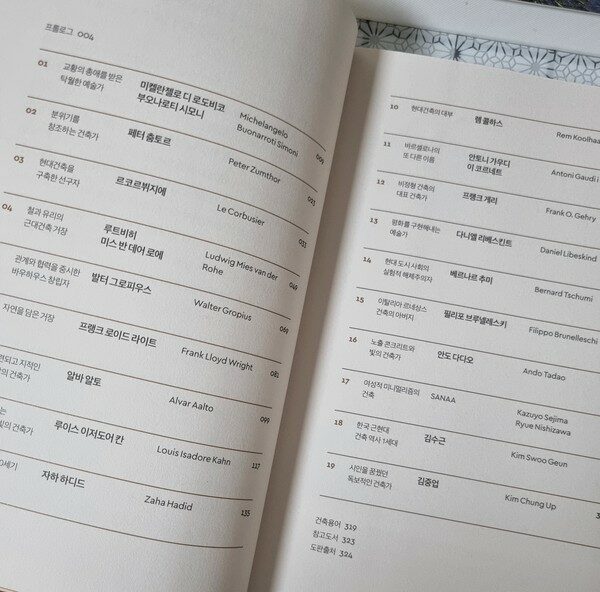 프롤로그 004
01 교황의 총애를 받은
탁월한 예술가
미켈란젤로 디 로도비코
부오나로티 시모니
Michelangelo
Buonarroti Simoni
009
02 분위기를
창조하는 건축가
페터 춤토르
Peter Zumthor
03 현대건축을
구축한 선구자
르코르뷔지에
Le Corbusier
04 철과 유리의
근대건축 거장
루트비히
미스 반 데어 로에
Ludwig Mies van der
Rohe
049
관계와 협력을 중시한
바우하우스 창립자
발터 그로피우스
Walter Gropius
069
자연을 담은 거장
프랭크 로이드 라이트
Frank Lloyd Wright
081
지적인
건축가
알바 알토
Alvar Aalto
099
빛의 건축가
루이스 이저도어 칸
Louis Isadore Kahn
117
자하 하디드
Zaha Hadid
135
10 현대건축의 대부
렘 콜하스
Rem Koolhaas
11 바르셀로나의
또 다른 이름
안토니 가우디
이 코르네트
Antoni Gaudi i
12 비정형 건축의
대표 건축가
프랭크 게리
Frank O. Gehry
13 평화를 구현해내는
예술가
다니엘 리베스킨트
Daniel Libeskind
14 현대 도시 사회의
실험적 해체주의자
베르나르 추미
Bernard Tschumi
15 이탈리아 르네상스
건축의 아버지
필리포 브루넬레스키
Filippo Brunelleschi
16 노출 콘크리트와
빛의 건축가
안도 다다오
Ando Tadao
17 여성적 미니멀리즘의
건축
SANAA
Kazuyo Sejima
Ryue Nishizawa
18 한국 근현대
건축 역사 1세대
김수근
Kim Swoo Geun
19 시인을 꿈꿨던
독보적인 건축가
김중업
Kim Chung Up
건축용어 319
참고도서 323
도판출처 324